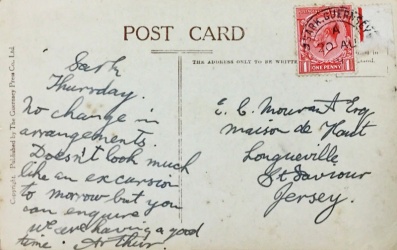 POST CARD
THE ADDRESS ONLY TO BE WRITTEN
SARK, GUERNSEY
ONE PENNY
Copyright. Published by The Guernsey Press Co., Ltd.
Sark
Thursday.
No change in
arrangements.
Doesn't look much
like an excursion
to morrow but you
can enquire
we are having a good
time. Arthur.
E. C. Mourant Esq
maison de Haut
Longueville
St Saviour
Jersey.